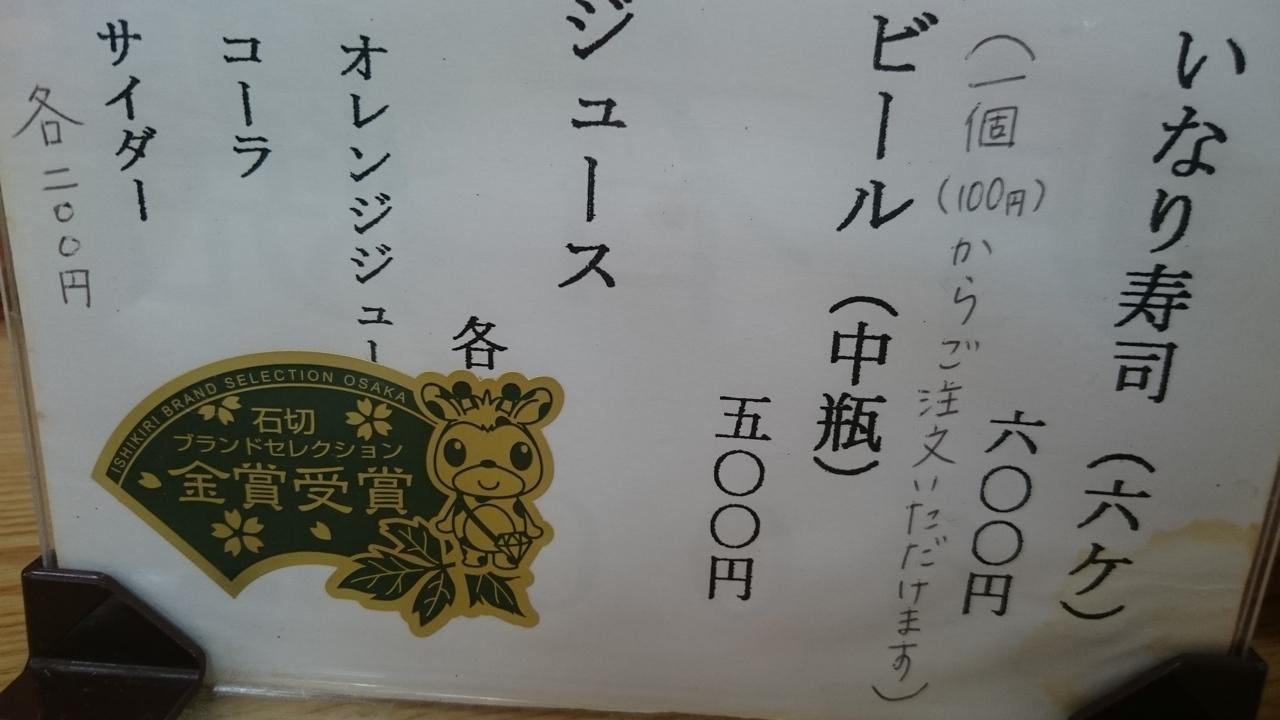 いなり寿司（六ケ）
六〇〇円
（一個（100円）からご注文いただけます）
ビール（中瓶）
五〇〇円
ジュース
各
オレンジジュー
コーラ
サイダー
各二〇〇円
ISHIKIRI BRAND SELECTION OSAKA
石切
ブランドセレクション
金賞受賞